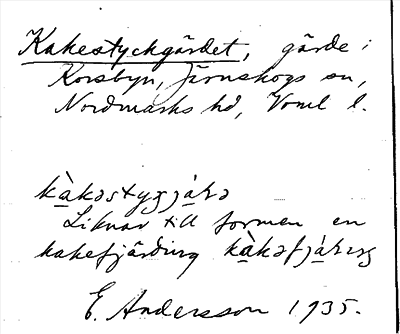 Kakestyckgärdet, gärde i
Korsbyn, Järnskogs sn,
Nordmarks hd, Vrml l.
kàkəstygjǻrə
Liknar till formen en
kakefjärding kàkəfjǻrıŋ
E. Andersson 1935.